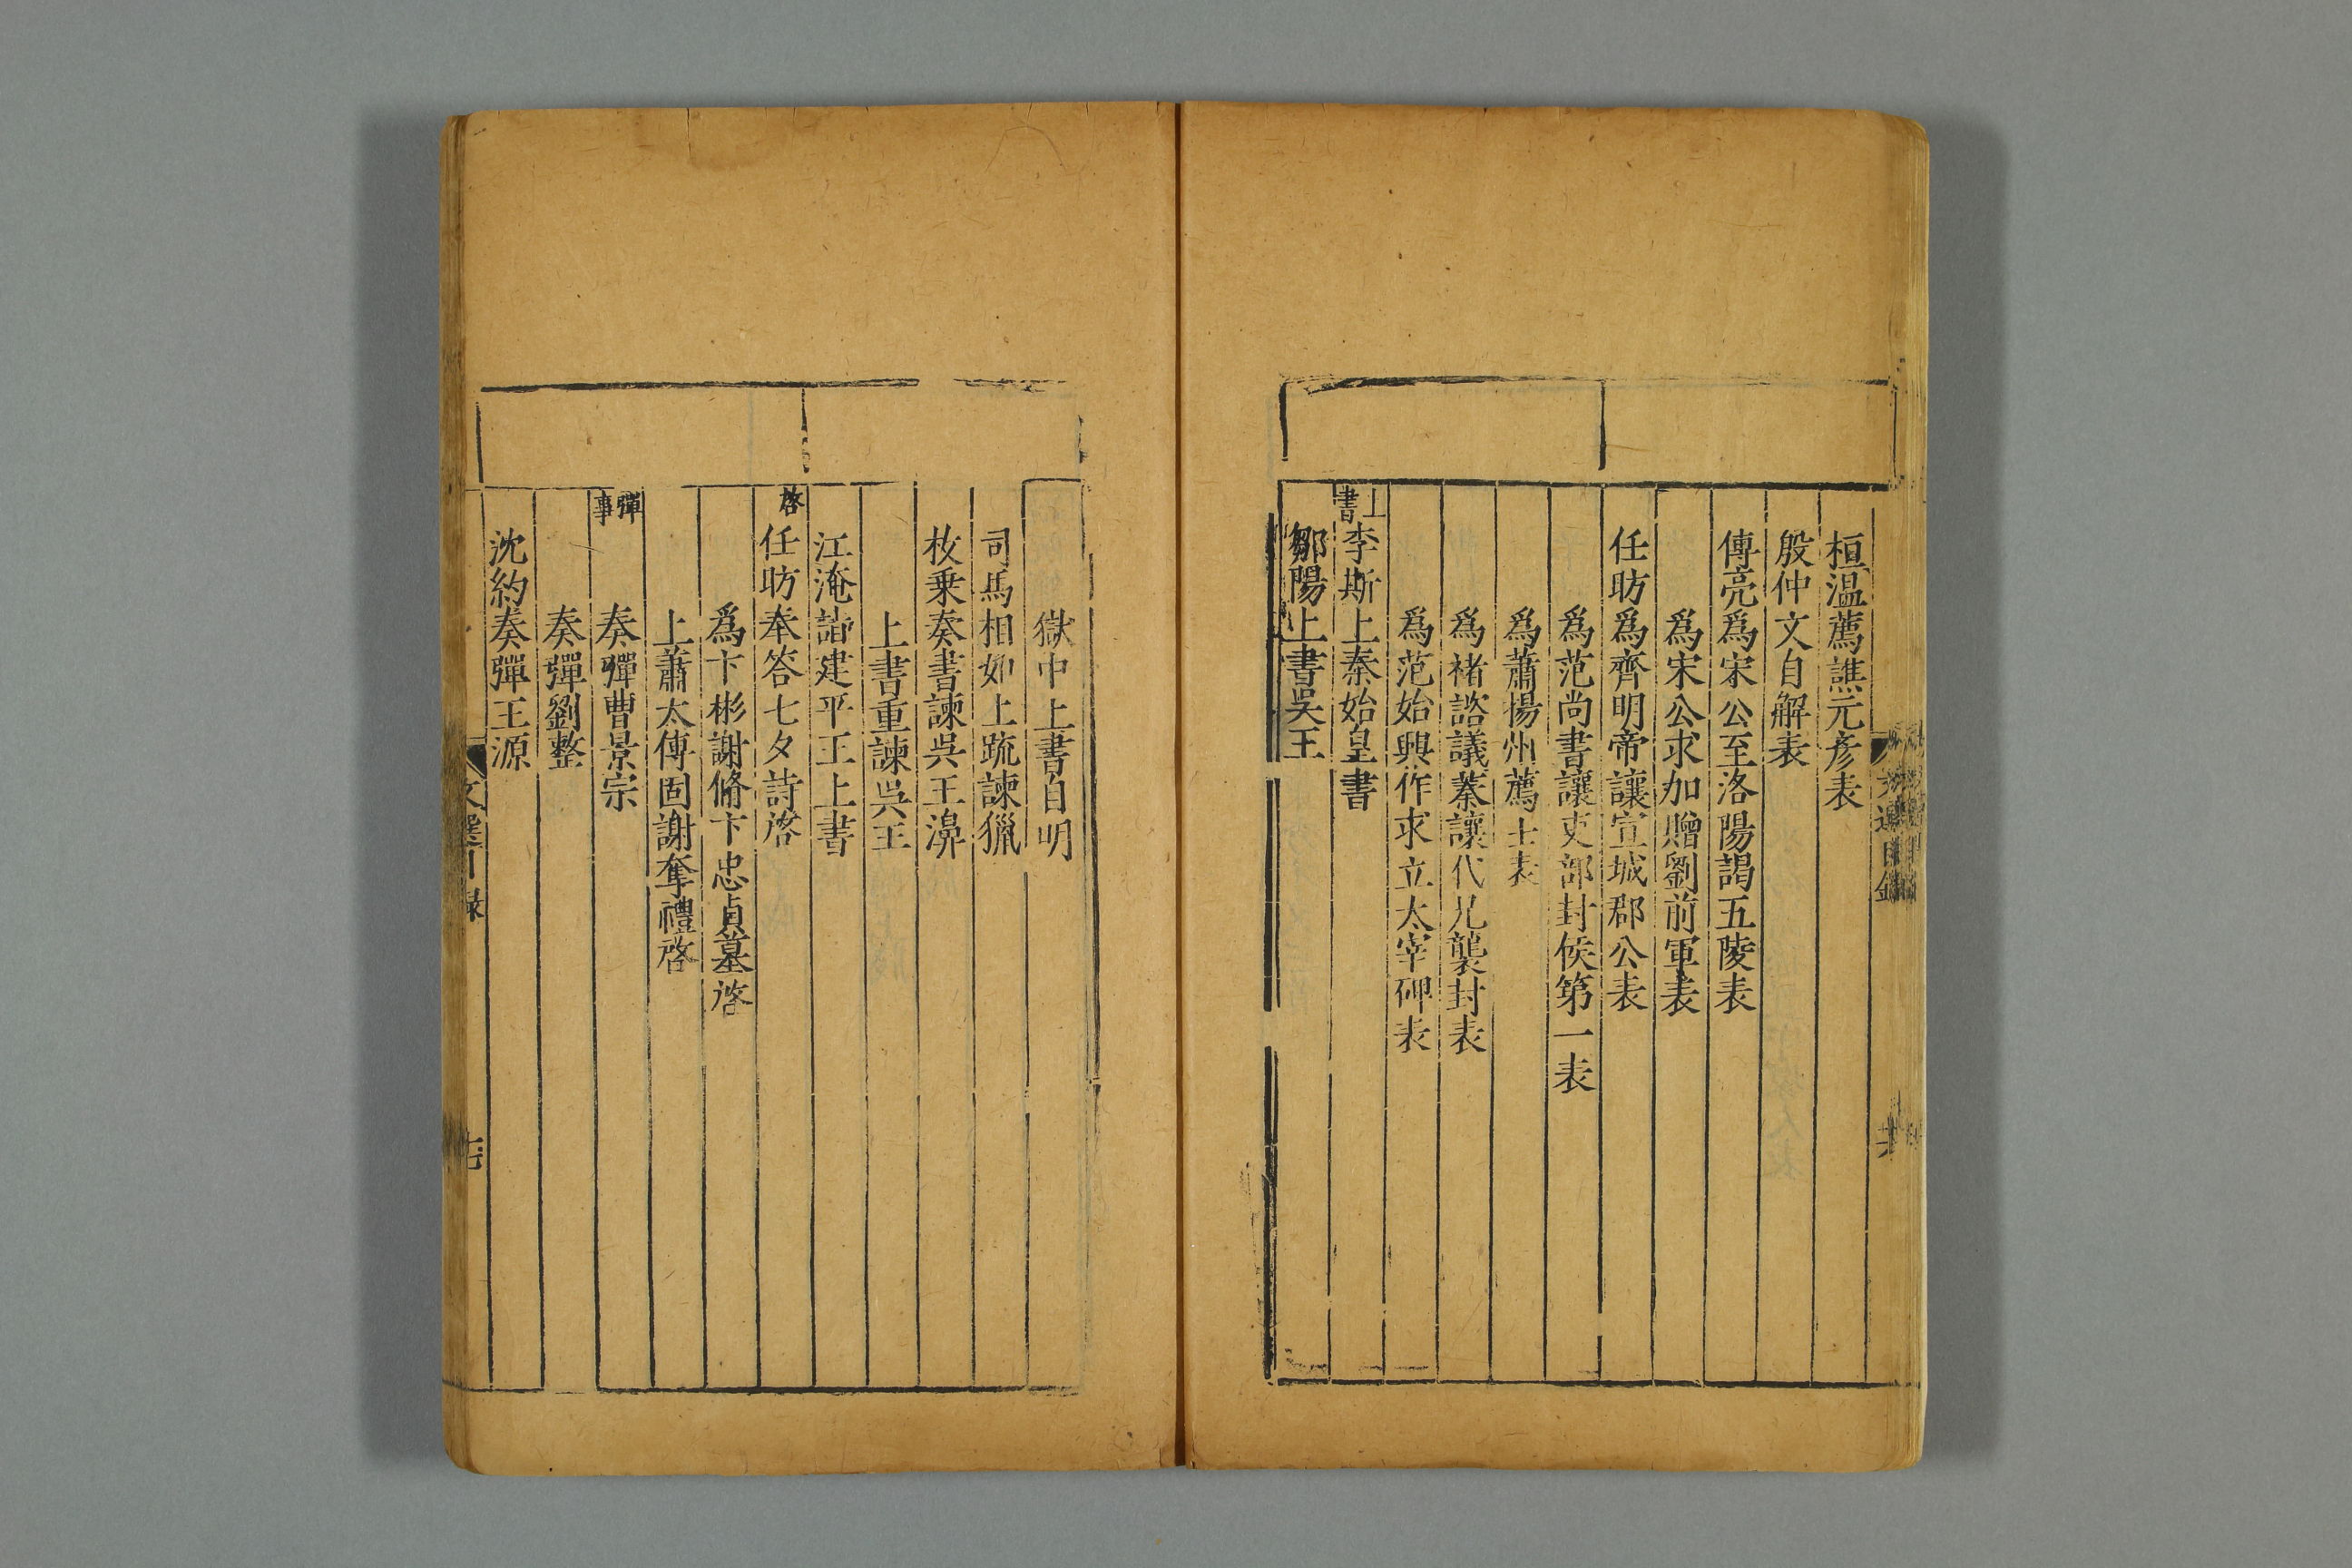 文選目録
桓温薦譙元彦表
殷仲文自解表
傅亮爲宋公至洛陽謁五陵表
爲宋公求加贈劉前軍表
任昉爲齊明帝讓宣城郡公表
爲范尚書讓吏部封侯第一表
爲蕭楊州薦士表
爲褚諮議蓁讓代兄襲封表
爲范始興作求立太宰碑表
上書 李斯上秦始皇書
鄒陽上書吳王
獄中上書自明
司馬相如上疏諫獵
枚乗奏書諫吳王濞
上書重諫吳王
江淹詣建平王上書
啓 任昉奉答七夕詩啓
爲卞彬謝脩卞忠貞墓啓
上蕭太傅固謝奪禮啓
彈事 奏彈曹景宗
奏彈劉整
沈約奏彈王源
文選目録